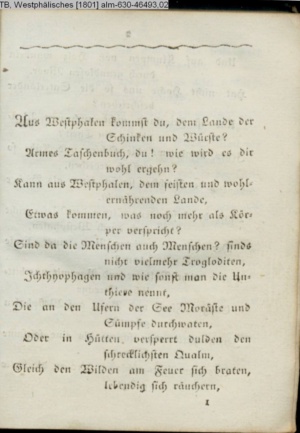 TB. Westphälisches [1801] alm-630-46493.02
2
Aus Westphalen kommst du, dem Lande der
Schinken und Würste?
Armes Taschenbuch, du! wie wird es dir
wohl ergehn?
Kann aus Westphalen, dem feisten und wohl-
ernährenden Lande,
Etwas kommen, was noch mehr als Kör-
per verspricht?
Sind da die Menschen auch Menschen? sinds
nicht vielmehr Trogloditen,
Ichthyophagen und wie sonst man die Un-
thiere nennt,
Die an den Ufern der See Moräste und
Sümpfe durchwaten,
Oder in Hütten versperrt dulden den
schrecklichsten Qualm,
Gleich den Wilden am Feuer sich braten,
lebendig sich räuchern,
1